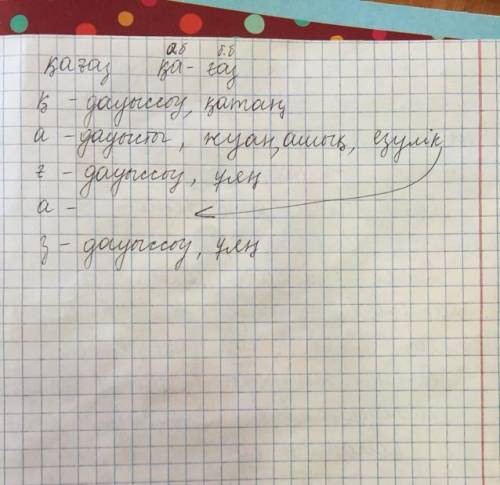 а.б б.б
қағаз қа-ғаз
қ - дауыссыз, қатаң
а - дауысты, жуан, ашық, езулік
ғ - дауыссыз, ұяң
а -
з - дауыссыз, ұяң